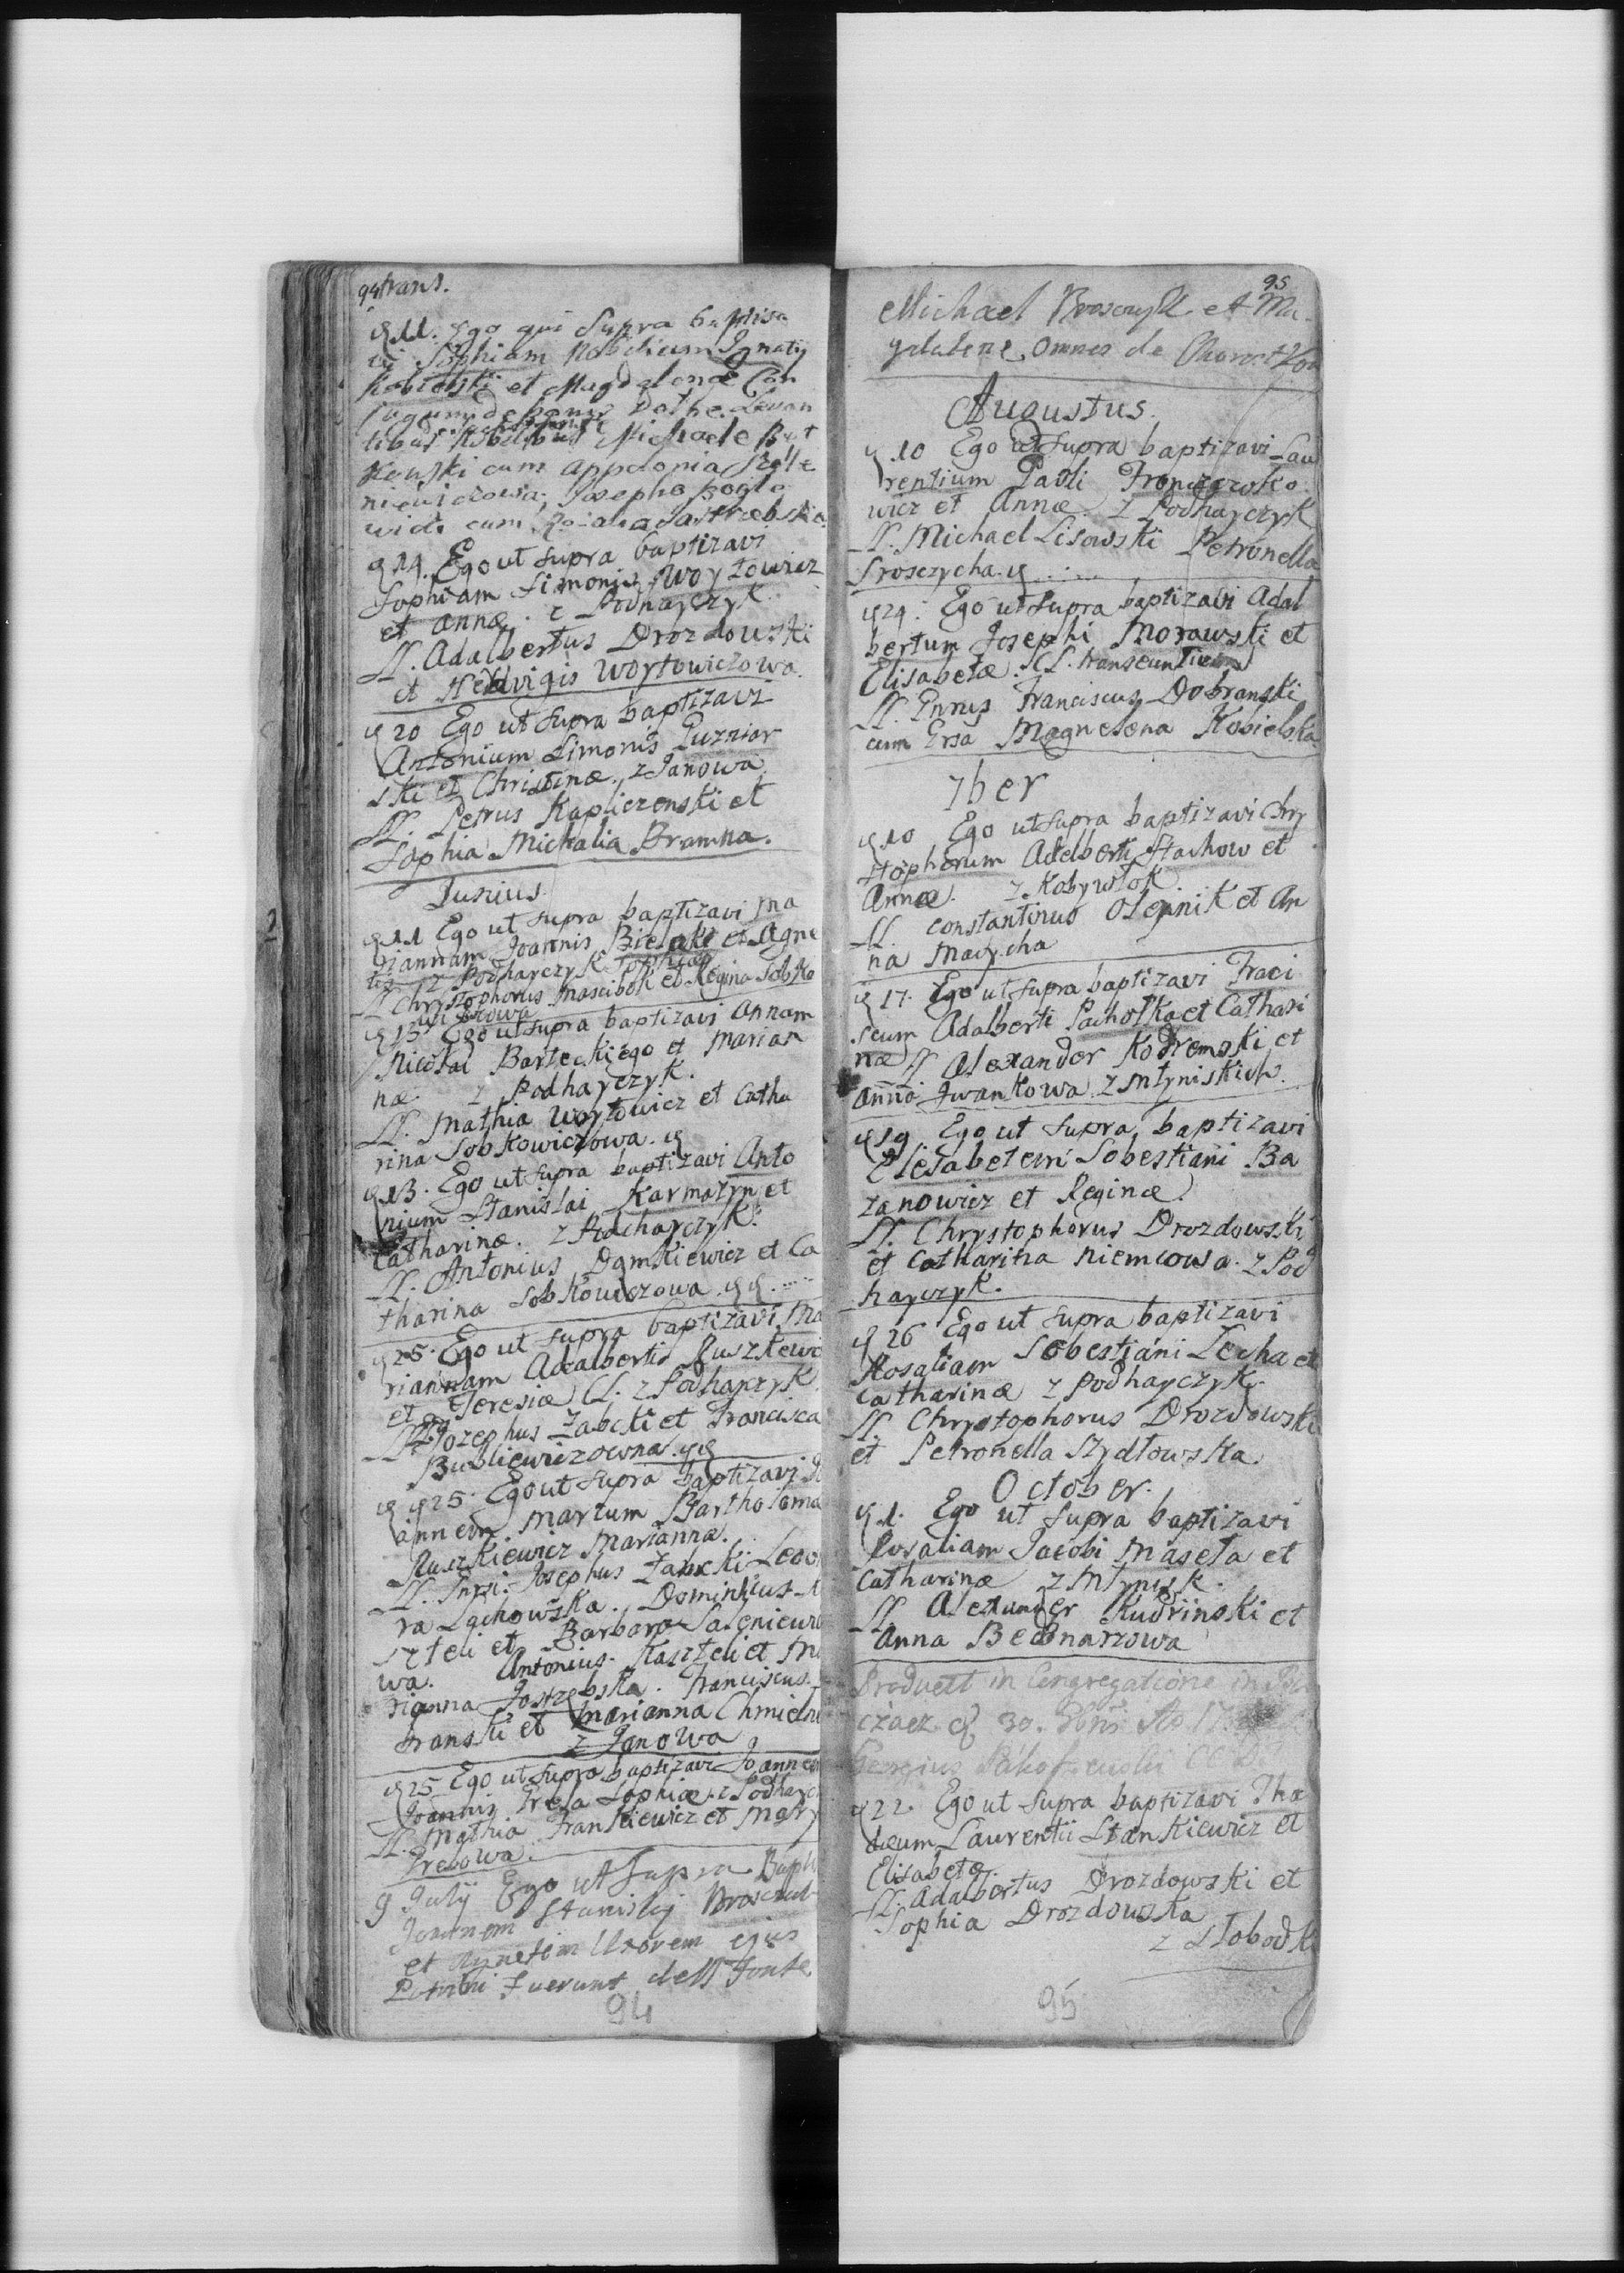 94 trans.
11. Ego qui Supra baptisa
vi Sophiam Nobilium Ignatij
Kobielski et Magdalenæ Con
jugum de
tibus Nobilibus Michaele But
kowski cum Appolonia
Josepho
cum Jastrzebska
14. Ego ut supra baptizavi
Sophiam Simonis Woytowicz
et Annæ. z Podhayczyk.
LL. Adalbertus Drozdowski
et Hedvigis Woytowiczowa.
20 Ego ut supra baptizavi
Antonium Simonis Puzniar
ski et Christinæ. z Janowa
LL. Petrus Kapliczenski et
Sophia Michalia Bramna.
Junius
11 Ego ut supra baptizavi Ma
riannam Joannis Bielaki et Agne
tis z Podhayczyk
LL Chrystophorus Mascibok et Regina Sobko
wiczowa
13 Ego ut supra baptizavi Annam
Nicolai Barteckiego et Marian
næ z Podhayczyk.
LL. Mathia Woytowicz et Catha
rina Sobkowiczowa.
13. Ego ut supra baptizavi Anto
nium Stanislai Karmazyn et
Catharinæ. z Podhayczyk.
LL. Antonius Damkiewicz et Ca
tharina Sobkowiczowa
25. Ego ut supra baptizavi Ma
riannam Adalberti Ruszkewi
et Teresiæ CL. z Podhayczyk
LL. Jozephus Zabcki et Francisca
Bubliewiczowna.
25. Ego ut supra baptizavi Jo
annem Martum Bartholoma
Ruszkiewicz Mariannæ.
LL. Josephus Zabcki Leono
ra Lachowska. Dominicus
szteli et Barbara Saleniewi
wa. Antonius Kaszteli et Ma
rianna Jastrzebska. Franciscus
branski et Marianna Chmieln
z Janowa
25 Ego ut supra baptizavi Joannem
Joannis Freja Sophiæ. z Podhayc
LL. Mathia Frankiewicz et Mary
Frejowa.
9 Julij Ego ut Supra Bapti
Joannem Stanislaj
et Agnetim Uxorem ejus
Patrini fuerunt de S Fonte
94
95
Michael et Ma-
gdalena Omnes de
Augustus.
10 Ego ut supra baptizavi Lau
rentium Pauli Fronczczko
wicz et Annæ. z Podhayczyk
LL. Michael Lisowski Petronella
Srosczycha.
24. Ego ut supra baptizavi Adal
bertum Josephi Morawski et
Elisabetæ. CL. transeuntium
LL. Gnrus Franciscus Dobranski
cum Grsa Magnelena Kobielska
7ber
10 Ego ut supra baptizavi Chry
stophorum Adalberti Stachow et
Annæ. z Kobywłok.
LL. Constantinus Olejnik et An
na Macycha
17. Ego ut supra baptizavi Franci
scum Adalberti Pachołka et Cathari
næ LL Alexander Kodremski et
Anna Iwankowa. z Młyniskich.
19. Ego ut supra baptizavi
Elisabetem Sobestiani Ba
zanowicz et Reginæ.
LL. Chrystophorus Drozdowski
et Catharina Niemcowa. z Pod
hayczyk.
26 Ego ut supra baptizavi
Rosaliam Sobestiani Lecha et
Catharinæ z Podhayczyk.
LL. Chrystophorus Drozdowski
et Petronella Szydłowska.
October.
1. Ego ut supra baptizavi
Rosaliam Jacobi Maseła et
Catharinæ z Młynisk.
LL Alexander Kudrinski et
Anna Bednarzowa
Produett in Congregatione in Bu
czacz 30.
Georgius
22. Ego ut supra baptizavi Tha
deum Laurentii Stankiewicz et
Elisabetæ.
LL. Adalbertus Drozdowski et
Sophia Drozdowska
z Słobodk
95